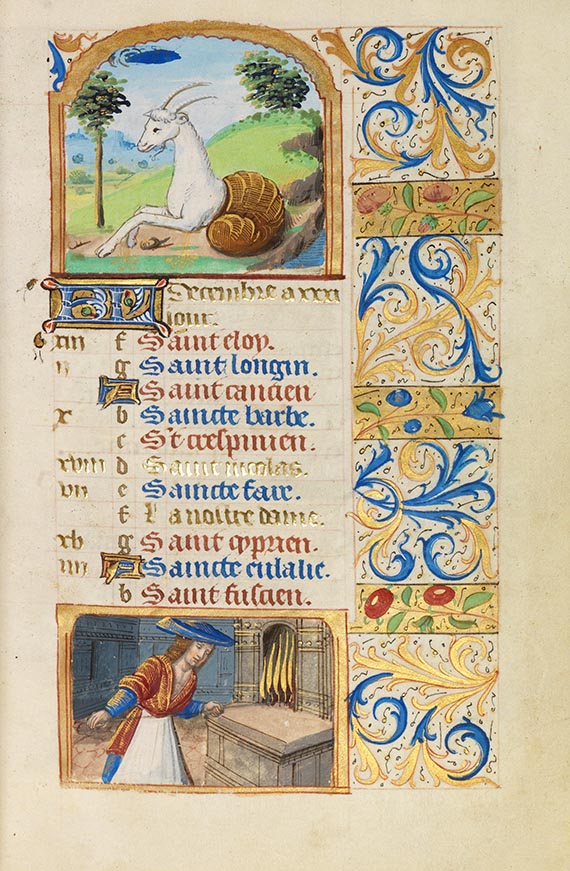 KL Decembre a xxxi
iour.
xiii f Saint eloy.
ii g Saint longin.
A Saint cancien
x b Saincte barbe.
c St crespinien.
xviii d Saint nicolas.
vii e Saincte fare.
f La nostre dame.
xv g Saint cyprien.
iiii A Saincte eulalie.
b Saint fuscien.